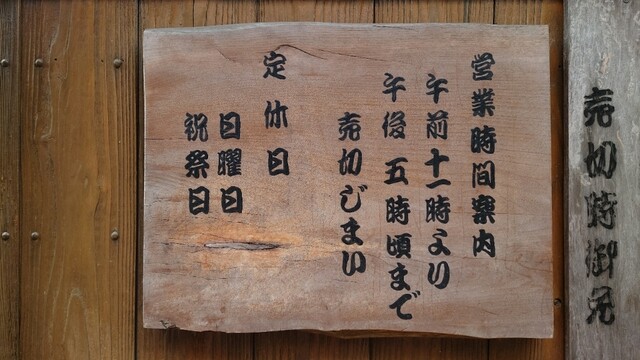 売切時御免
営業時間案内
午前十一時より
午後五時頃まで
売切じまい
定休日
日曜日
祝祭日